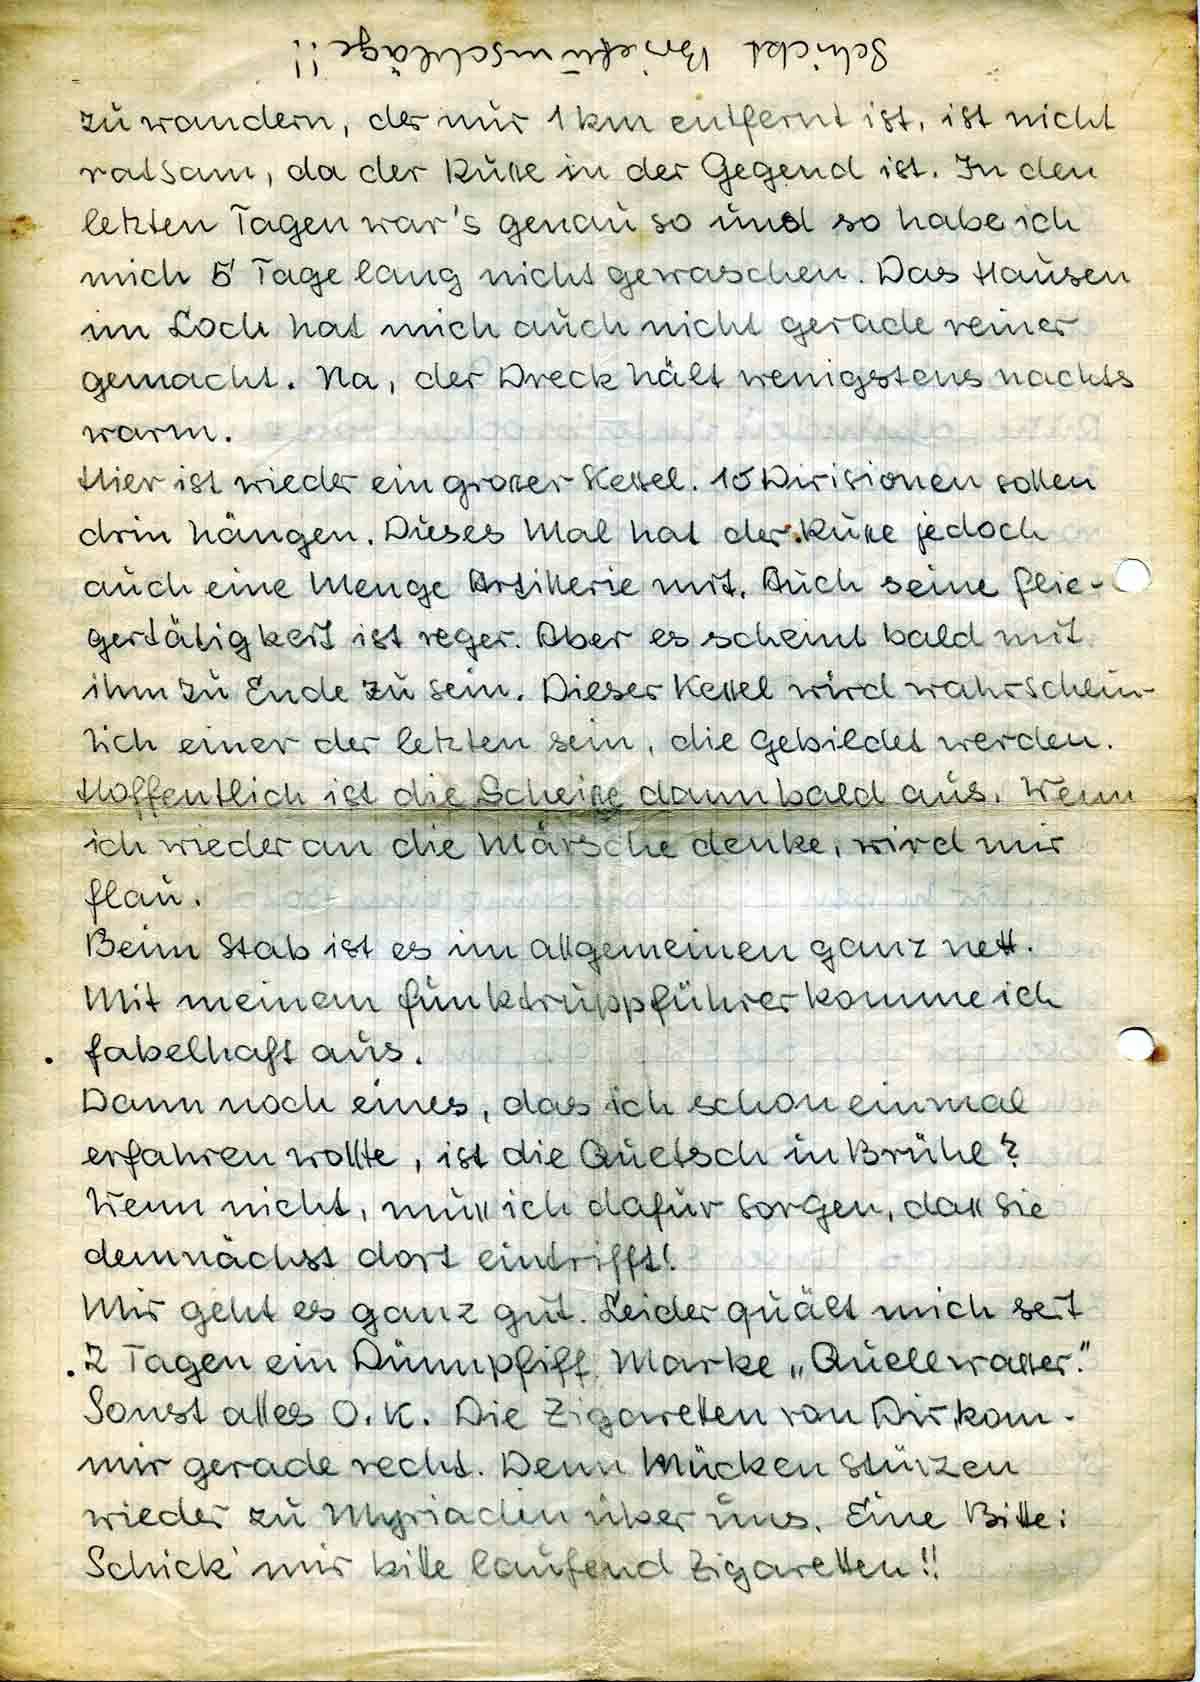 Schickt Briefumschläge!!
zu wandern, der nur 1 km entfernt ist, ist nicht
ratsam, da der Russe in der Gegend ist. In den
letzten Tagen war's genau so und so habe ich
mich 5 Tage lang nicht gewaschen. Das Hausen
im Loch hat mich auch nicht gerade reiner
gemacht. Na, der Dreck hält wenigstens nachts
warm.
Hier ist wieder ein grosser Kessel. 15 Divisionen sollen
drin hängen. Dieses Mal hat der Russe jedoch
auch eine Menge Artillerie mit. Auch seine Flie-
gertätigkeit ist reger. Aber es scheint bald mit
ihm zu Ende zu sein. Dieser Kessel wird wahrschein-
lich einer der letzten sein, die gebildet werden.
Hoffentlich ist die Scheisse dann bald aus. Wenn
ich wieder an die Märsche denke, wird mir
flau.
Beim Stab ist es im allgemeinen ganz nett.
Mit meinem Funktruppführer komme ich
fabelhaft aus.
Dann noch eines, das ich schon einmal
erfahren wollte, ist die Quetsch in Brühl?
Wenn nicht, muss ich dafür sorgen, dass sie
demnächst dort eintrifft!
Mir geht es ganz gut. Leider quält mich seit
2 Tagen ein Dünnpfiff Marke „Quellwasser."
Sonst alles O.K. Die Zigaretten von Dir kom-
mir gerade recht. Denn Mücken stürzen
wieder zu Myriaden über uns. Eine Bitte:
Schick' mir bitte laufend Zigaretten!!